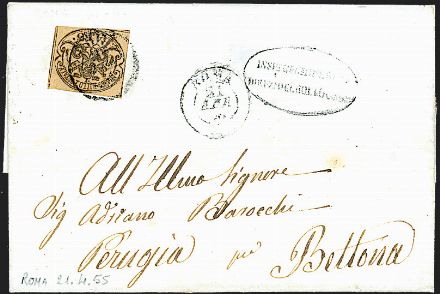 ROMA
21
APR
All' Illmo Signore
Sig Adriano Barocchi
Perugia per Bettona
ROMA 21.4.55